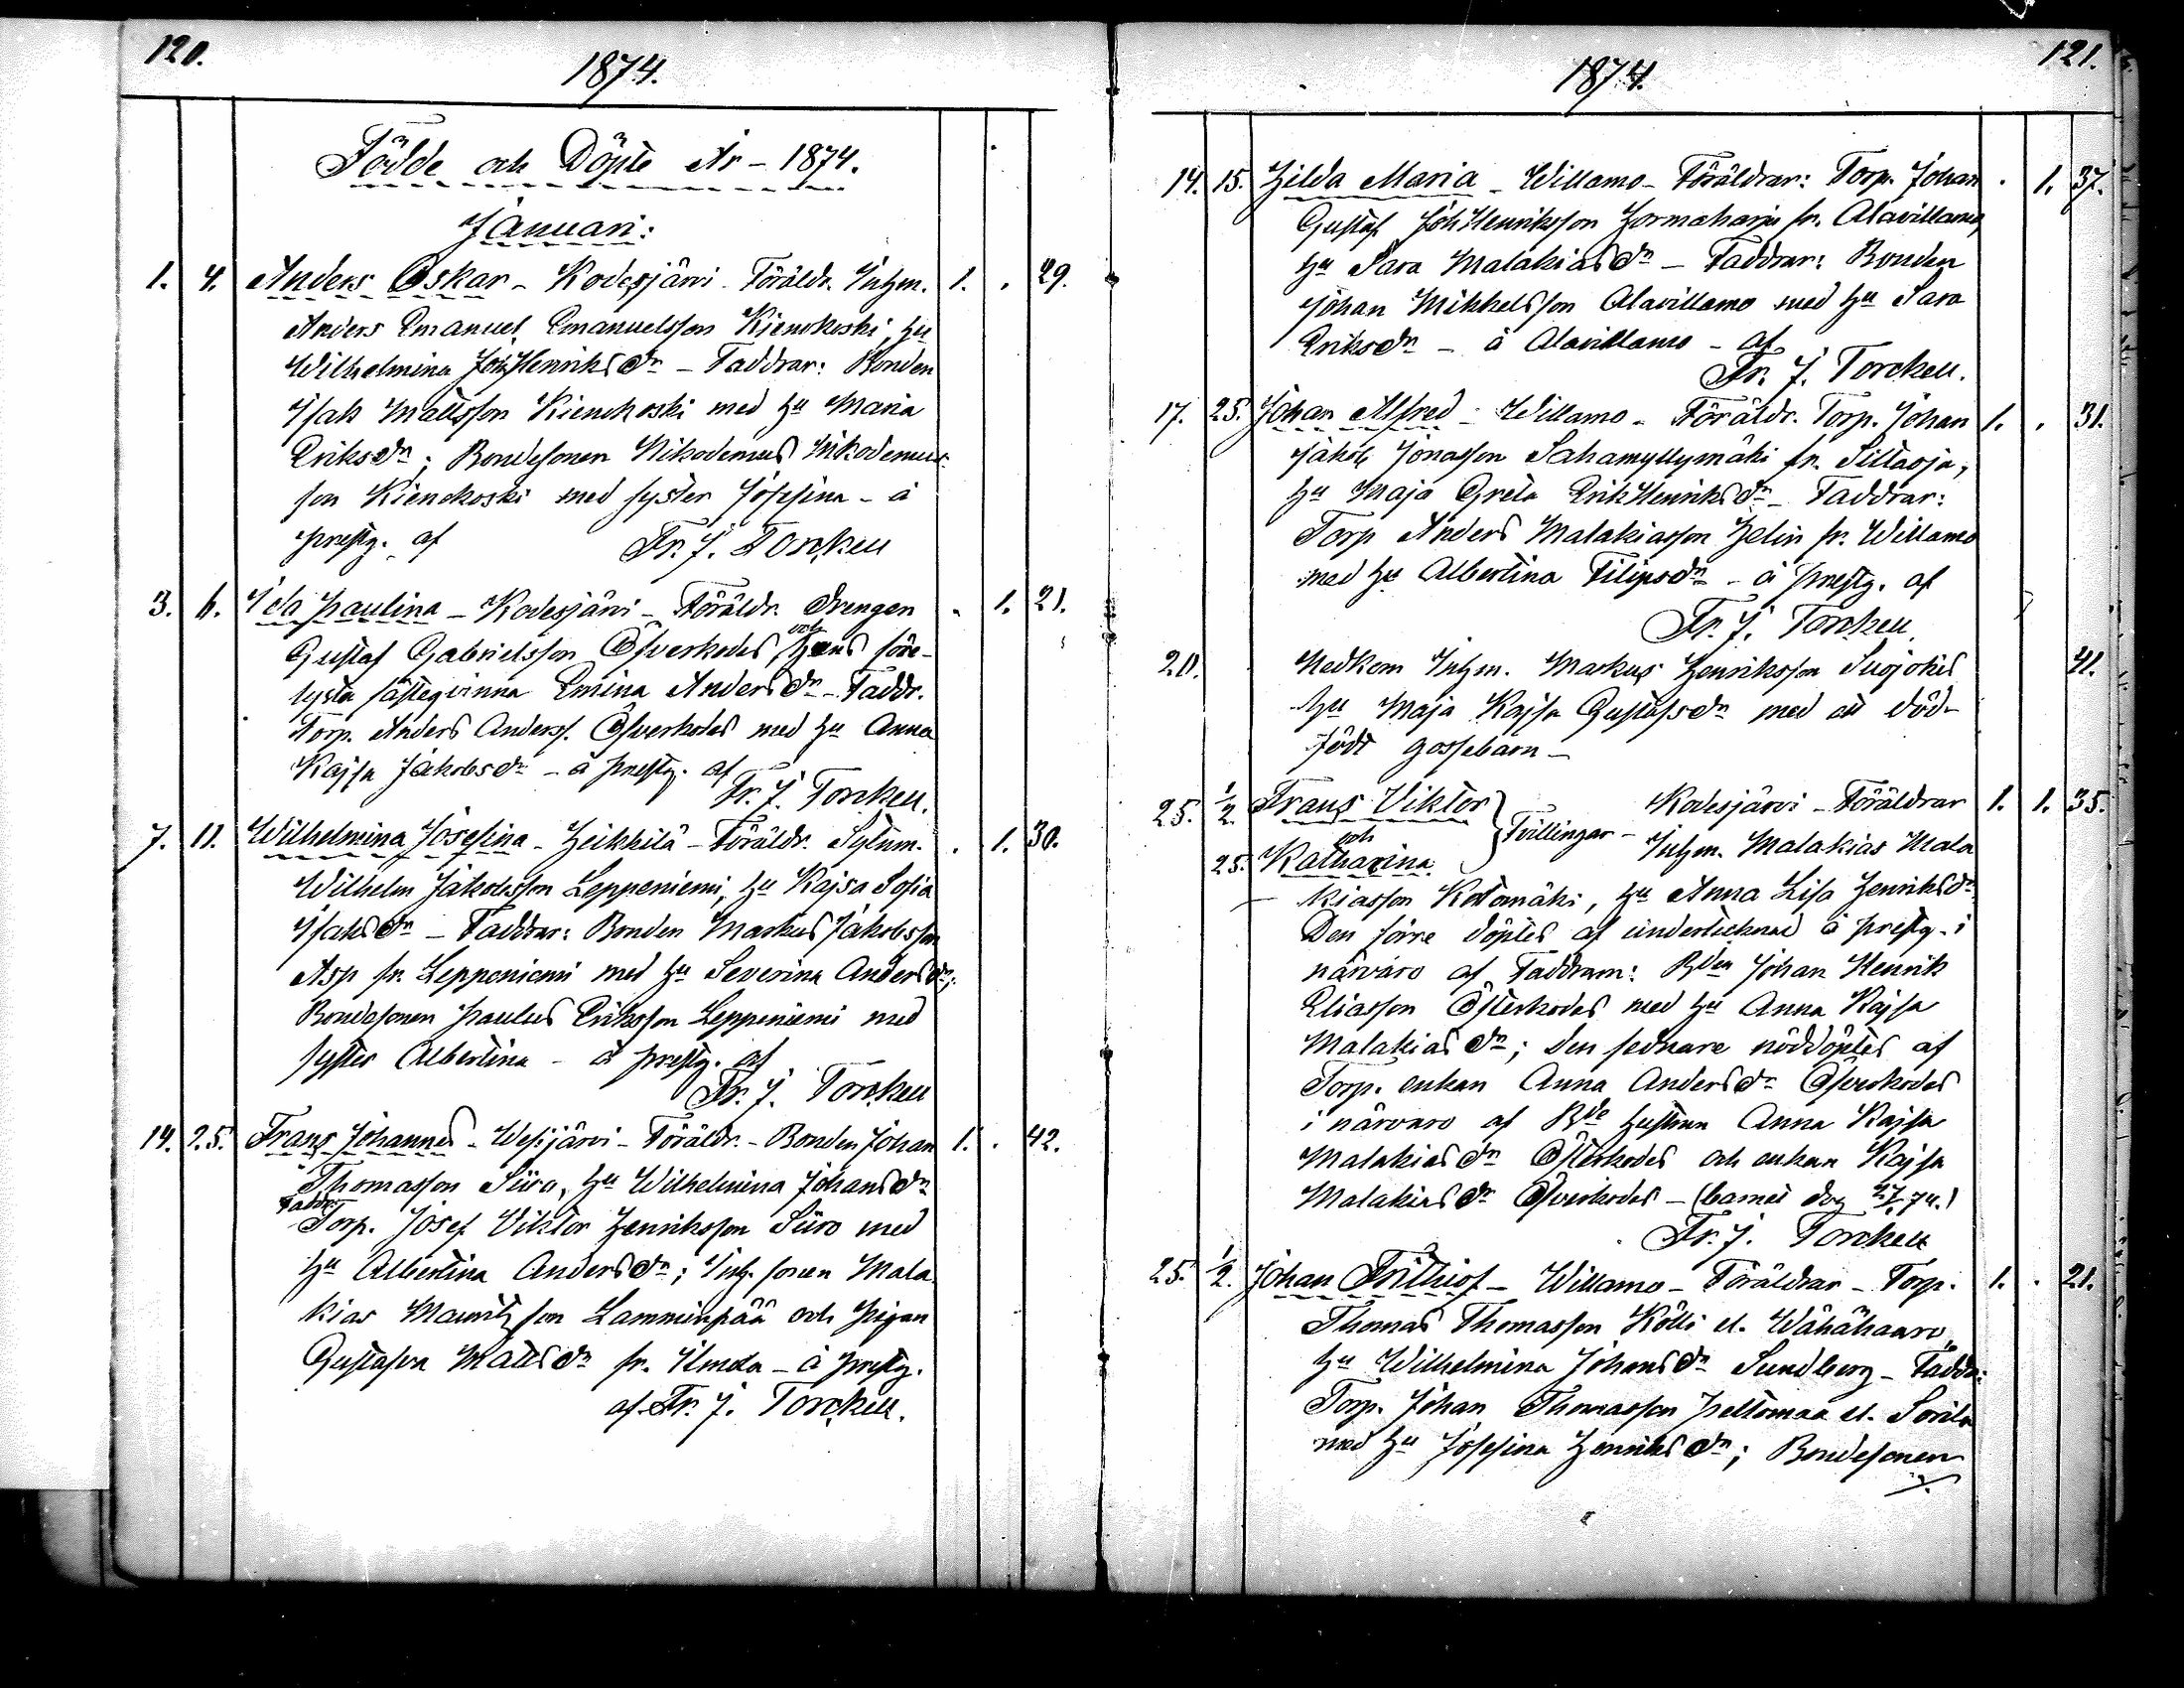 120.
1874.
Födde och Döpte År - 1874.
Januari:
1. 4. Anders Oskar - Kodesjärvi - Föräldr. Inhm. 1. . 29.
Anders Emanuel Emanuelsson Kienokoski, hu
Wilhelmina Joh Henriksdr - Faddrar: Bonden
Isak Mattsson Kienokoski med hu Maria
Eriksdr; Bondesonen Nikodemus Nikodemus-
son Kienokoski med syster Josefina - å
prestg. af Fr. J. Torckell
3. 6. Ida Paulina - Kodesjärvi - Föräldr. drengen . 1. 21.
Gustaf Gabrielsson Öfverkodes, och hans före-
systa fästeqvinna Emina Andersdr - Faddr.
Torp. Anders Anderss. Öfverkodes med hu Anna
Kajsa Jakobsdr - å prestg. af
Fr. J. Torckell.
7. 11. Wilhelmina Josefina - Heikkilä - Föräldr. Sytnm. . 1. 30.
Wilhelm Jakobsson Leppeniemi, hu Kajsa Sofia
Isaksdr - Faddrar: Bonden Markus Jakobsson
Asp fr. Leppeniemi med hu Severina Andersdr;
Bondesonen Paulus Eriksson Leppeniemi med
syster Albertina - å prestg. af
Fr. J. Torckell
14. 25. Frans Johannes - Wesijärvi - Föräldr. - Bonden Johan 1. . 42.
Thomasson Siira, hu Wilhelmina Johansdr
Faddr:
Torp. Josef Viktor Henriksson Siiro med
hu Albertina Andersdr; Inh. sonen Mala
kias Mauritzson Lamminpää och pigan
Gustafva Mattsdr fr. - å prestg.
af Fr. J. Torckell.
121.
1874.
14. 15. Hilda Maria - Willamo - Föräldrar: Torp. Johan . 1. 37.
Gustaf Joh Henriksson Hormaharju fr. Alavillamo,
hu Sara Malakiasdr - Faddrar: Bonden
Johan Mikkelsson Alavillamo med hu Sara
Eriksdr - å Alavillamo - af
Fr. J. Torckell.
17. 25. Johan Alfred - Willamo - Föräldr. Torp. Johan 1. . 31.
Jakob Jonasson Sahamyllymäki fr. Siltaoja,
hu Maja Greta Erik Henriksdr - Faddrar:
Torp Anders Malakiasson Helin fr. Willamo
med hu Albertina Filipsdr - å prestg. af
Fr. J. Torckell.
20. Nedkom Inhm. Markus Henriksson Suojokis 41.
hu Maja Kajsa Gustafsdr med ett död-
födt gossebarn -
25. 1/2. Frans Viktor } Kodesjärvi - Föräldrar 1. 1. 35.
och Tvillingar -
25. Katharina Inhm. Malakias Mala
kiasson Kotomäki, hu Anna Lisa Henriksdr
Den förre döptes af undertecknad å prestg. i
närvaro af Faddram: Bden Johan Henrik
Eliasson Österkodes med hu Anna Kajsa
Malakiasdr; den sednare nöddöptes af
Torp. enkan Anna Andersdr Öfverkodes
i närvaro af Bde hustrun Anna Kajsa
Malakiasdr Österkodes och enkan Kajsa
Malakiasdr Öfverkodes - (barnet dog 27/1 74.)
Fr. J. Torckell
25. 1/2. Johan Frithiof - Willamo - Föräldrar - Torp. 1. . 21.
Thomas Thomasson Kölli el. Wähähaaro,
hu Wilhelmina Johansdr Sundberg - Faddr:
Torp. Johan Thomasson Peltomaa el. Sorila
med hu Josefina Henriksdr; Bondesonen